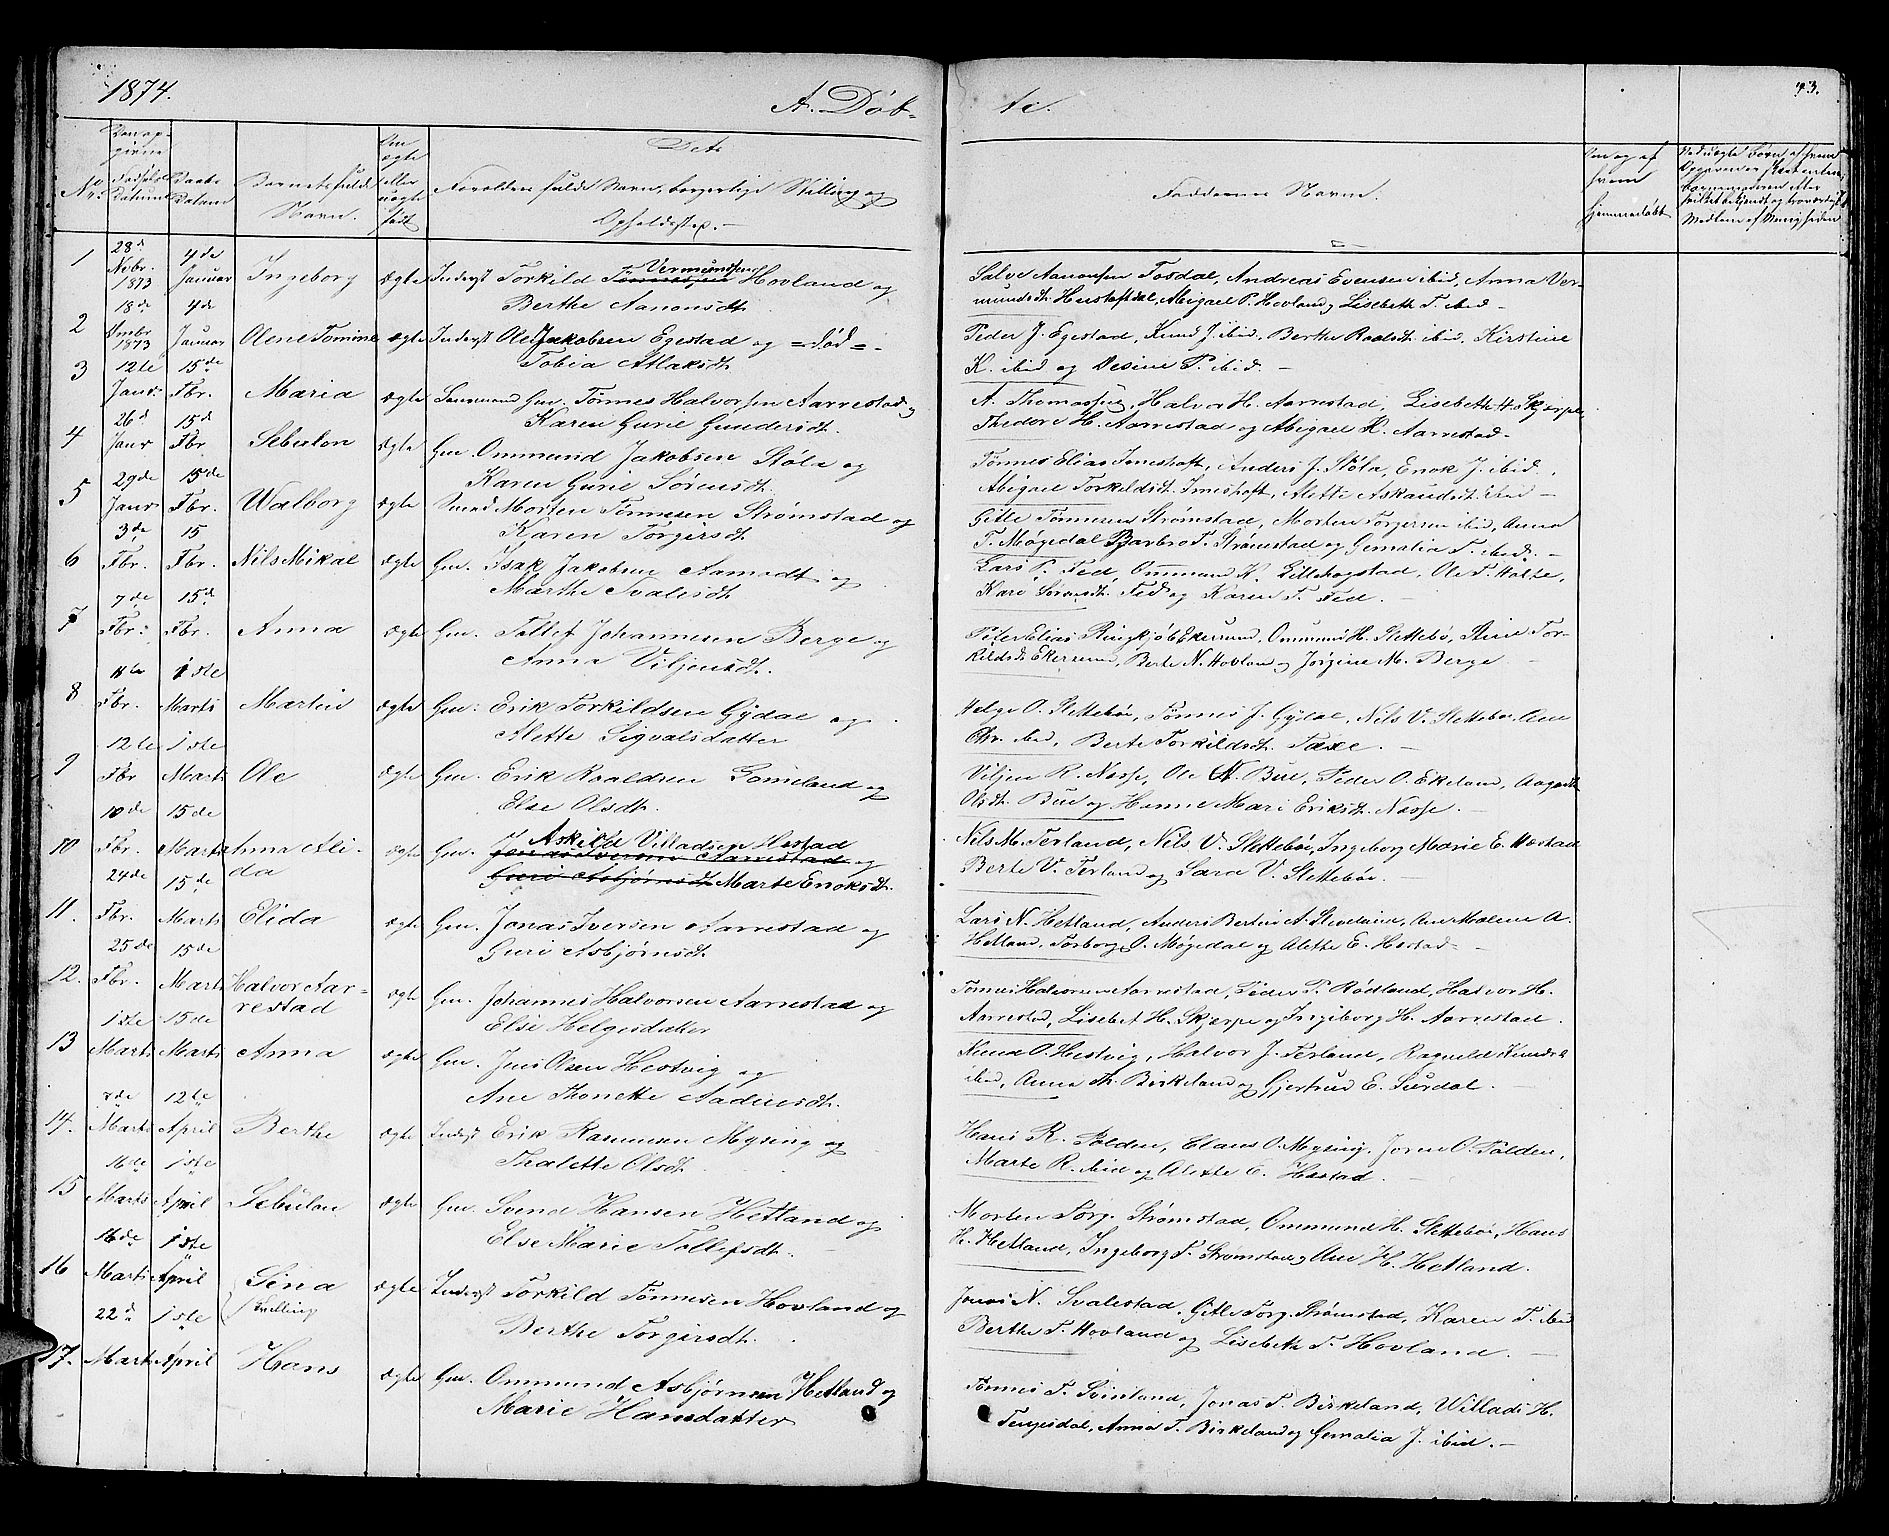 1874.
A. Døb-
te.
73.
No
Barnets fulde
Navn.
ægte
eller
uægte
født
Det
Forældres fulde Navn, borgerlige Stilling og
Opholdssted.
Faddernes Navne.
hjemmedøbt
1 28de Novbr. 1873 4de Januar Ingeborg ægte Inderst Torkild Tønnesen Vermundsen Hovland og
Berthe Aanonsdt.
Salve Aanonsen Tosdal, Andreas Evensen ibid, Anna Ver-
mundsdt. Hustoftdal, Abigael P. Hovland og Lisebeth T. ibid
2 18de Dmbr 1873 4de Januar Olene Tomine ægte Inderst Ole Jakobsen Egestad og =død=
Tobia Atlaksdt.
Peder J. Egestad, Knud J. ibid, Berthe Roaldsdt. ibid, Kirstine
K. ibid og Desine P. ibid.
3 12te Janr. 15de Fbr. Maria ægte Gm. Tønnes Halvorsen Aarrestad og
Karen Gurie Gundersdt.
A. Thomassen, Halvor H. Aarrestad, Lisebeth H. Skjærpe,
Thedore H. Aarrestad og Abigael K. Aarrestad.
4 26d Janr 15d Fbr. Sebulon ægte Gm. Ommund Jakobsen Støla og
Karen Gurie Sørensdt.
Tønnes Elias Imeshoft, Anders J. Støla, Enok J. ibid,
Abigael Torkildsdt. Imeshoft, Alette Askaudsdt. ibid
5 29de Janr 15de Fbr. Walborg ægte Morten Tønnesen Strømstad og
Karen Torgirsdt.
Gitle Tønnesen Strømstad, Morten Torgersen ibid, Anna
T. Møgedal, Barbro T. Strømstad og Gemalia T. ibid.
6 3de Fbr. 15 Fbr. Nils Mikal ægte Gm. Isak Jakobsen Aamodt og
Marthe Svalesdt.
Lars T. Fed, Ommund K. Lillehogstad, Ole T. Holte,
Kari Sørensdt. Fed og Karen T. Fed.
7 7de Fbr. 15d Fbr. Anna ægte Gm. Tollef Johannesen Berge og
Anna Viljensdt.
Peter Elias Ringkjøb Ekersund, Ommund H. Slettebø, Stine Tor-
kildsdt. Ekersund, Berte N. Hovland og Jørgine M. Berge
8 11te Fbr. 1ste Marts Martin ægte Gm. Erik Torkildsen Gydal og
Alette Sigvalsdatter
Helge O. Slettebøe, Tønnes J. Gydal, Nils V. Slettebø, Ane
Chr. ibid, Berte Torkildsdt. Taxe.
9 12te Fbr 1ste Marts Ole ægte Gm. Erik Roaldsen Gomeland og
Else Olsdt.
Viljen R. Nasse, Ole N. Bue, Peder O. Ekeland, Aagaath
Olsdt. Bue og Hanne Mari Eriksdt. Nasse.
10 10de Fbr. 15de Marts Anna Ali-
da ægte Gm. Askild Villadsen Hestad
Jonas Iversen Aarrestad og
Guri Asbjørnsdt. Marte Enoksdt.
Nils M. Terland, Nils V. Slettebøe, Ingeborg Marie E. Hæstad
Berte V. Terland og Sara V. Slettebøe.
11. 24de Fbr. 15de Marts Elida ægte Gm. Jonas Iversen Aarrestad og
Guri Asbjørnsdt.
Lars N. Hetland, Anders Bertin A. Steveland, Ane Malene A.
Hetland, Torborg O. Møgedal og Alette E. Hestad
12. 25de Fbr. 15de Marts Halvor Aar-
restad ægte Gm. Johannes Halvorsen Aarrestad og
Else Helgesdatter
Tønnes Halvorsen Aarrestad, Peder P. Rødland, Halvor H.
Aarrestad, Lisebet H. Skjærpe og Ingeborg H. Aarrestad.
13 1ste Marts 15de Marts Anna ægte Gm. Jens Olsen Hestvig og
Ane Thonette Aadnesdt.
Knud O. Hestvig, Halvor J. Terland, Ragnild Knudsd.
ibid, Anna Th. Birkeland og Gjertrud E. Surdal.
14. 7de Marts 12te April Berthe ægte Inderst Erik Rasmusen Mysing og
Thalette Olsdt.
Hans R. Polden, Claus O. Mysing, Joren O. Polden,
Marte R. ibid og Alette E. Hestad.
15 16de Marts 1ste April Sebulon ægte Gm. Svend Hansen Hetland og
Else Marie Tollefsdt.
Morten Torg. Strømstad, Ommund H. Slettebøe, Hans
H. Hetland, Ingeborg T. Strømstad og Ane H. Hetland.
16 16de Marts 1ste April Sina
Tvilling ægte Inderst Torkild Tønnesen Hovland og
Berthe Torgirsdt.
Jonas N. Svalestad, Gitle Torg. Strømstad, Karen T. ibid
Berthe T. Hovland og Lisebeth T. Hovland.
17. 22d Marts 1ste April Hans ægte Gm. Ommund Asbjørnsen Hetland og
Marie Hansdatter
Tønnes T. Svinland, Jonas T. Birkeland, Willads H.
Tengesdal, Anna T. Birkeland og Gemalia J. ibid.